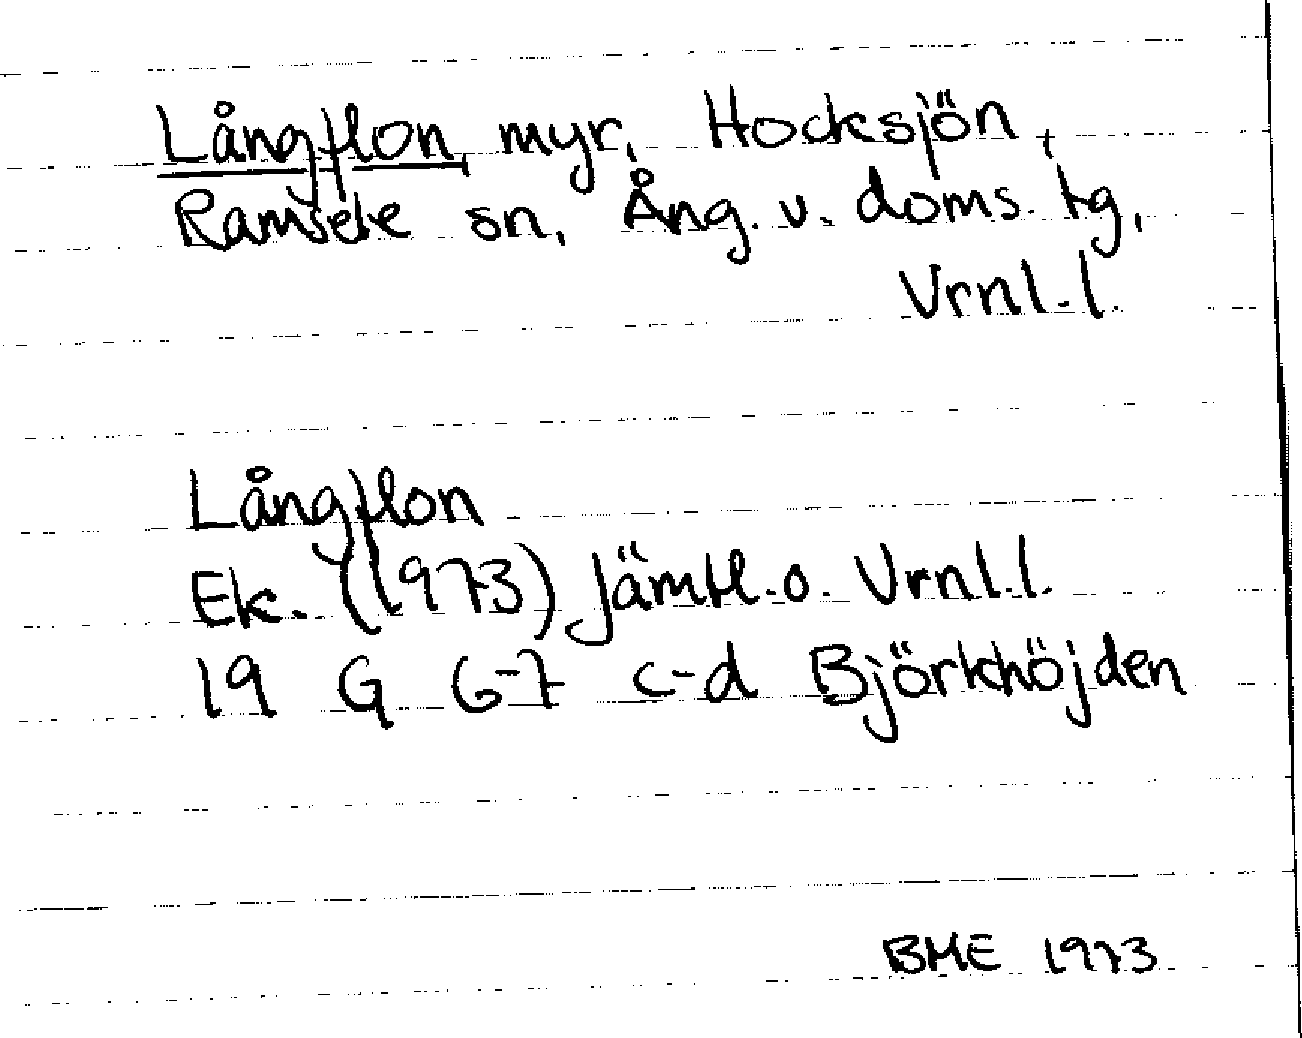 Långflon, myr, Hocksjön,
Ramsele sn, Ång. v. doms. tg,
Vrnl. l.
Långflon
Ek. (1973) Jämtl. o. Vrnl. l.
19 G 6-7 c-d Björkhöjden
BME 1973